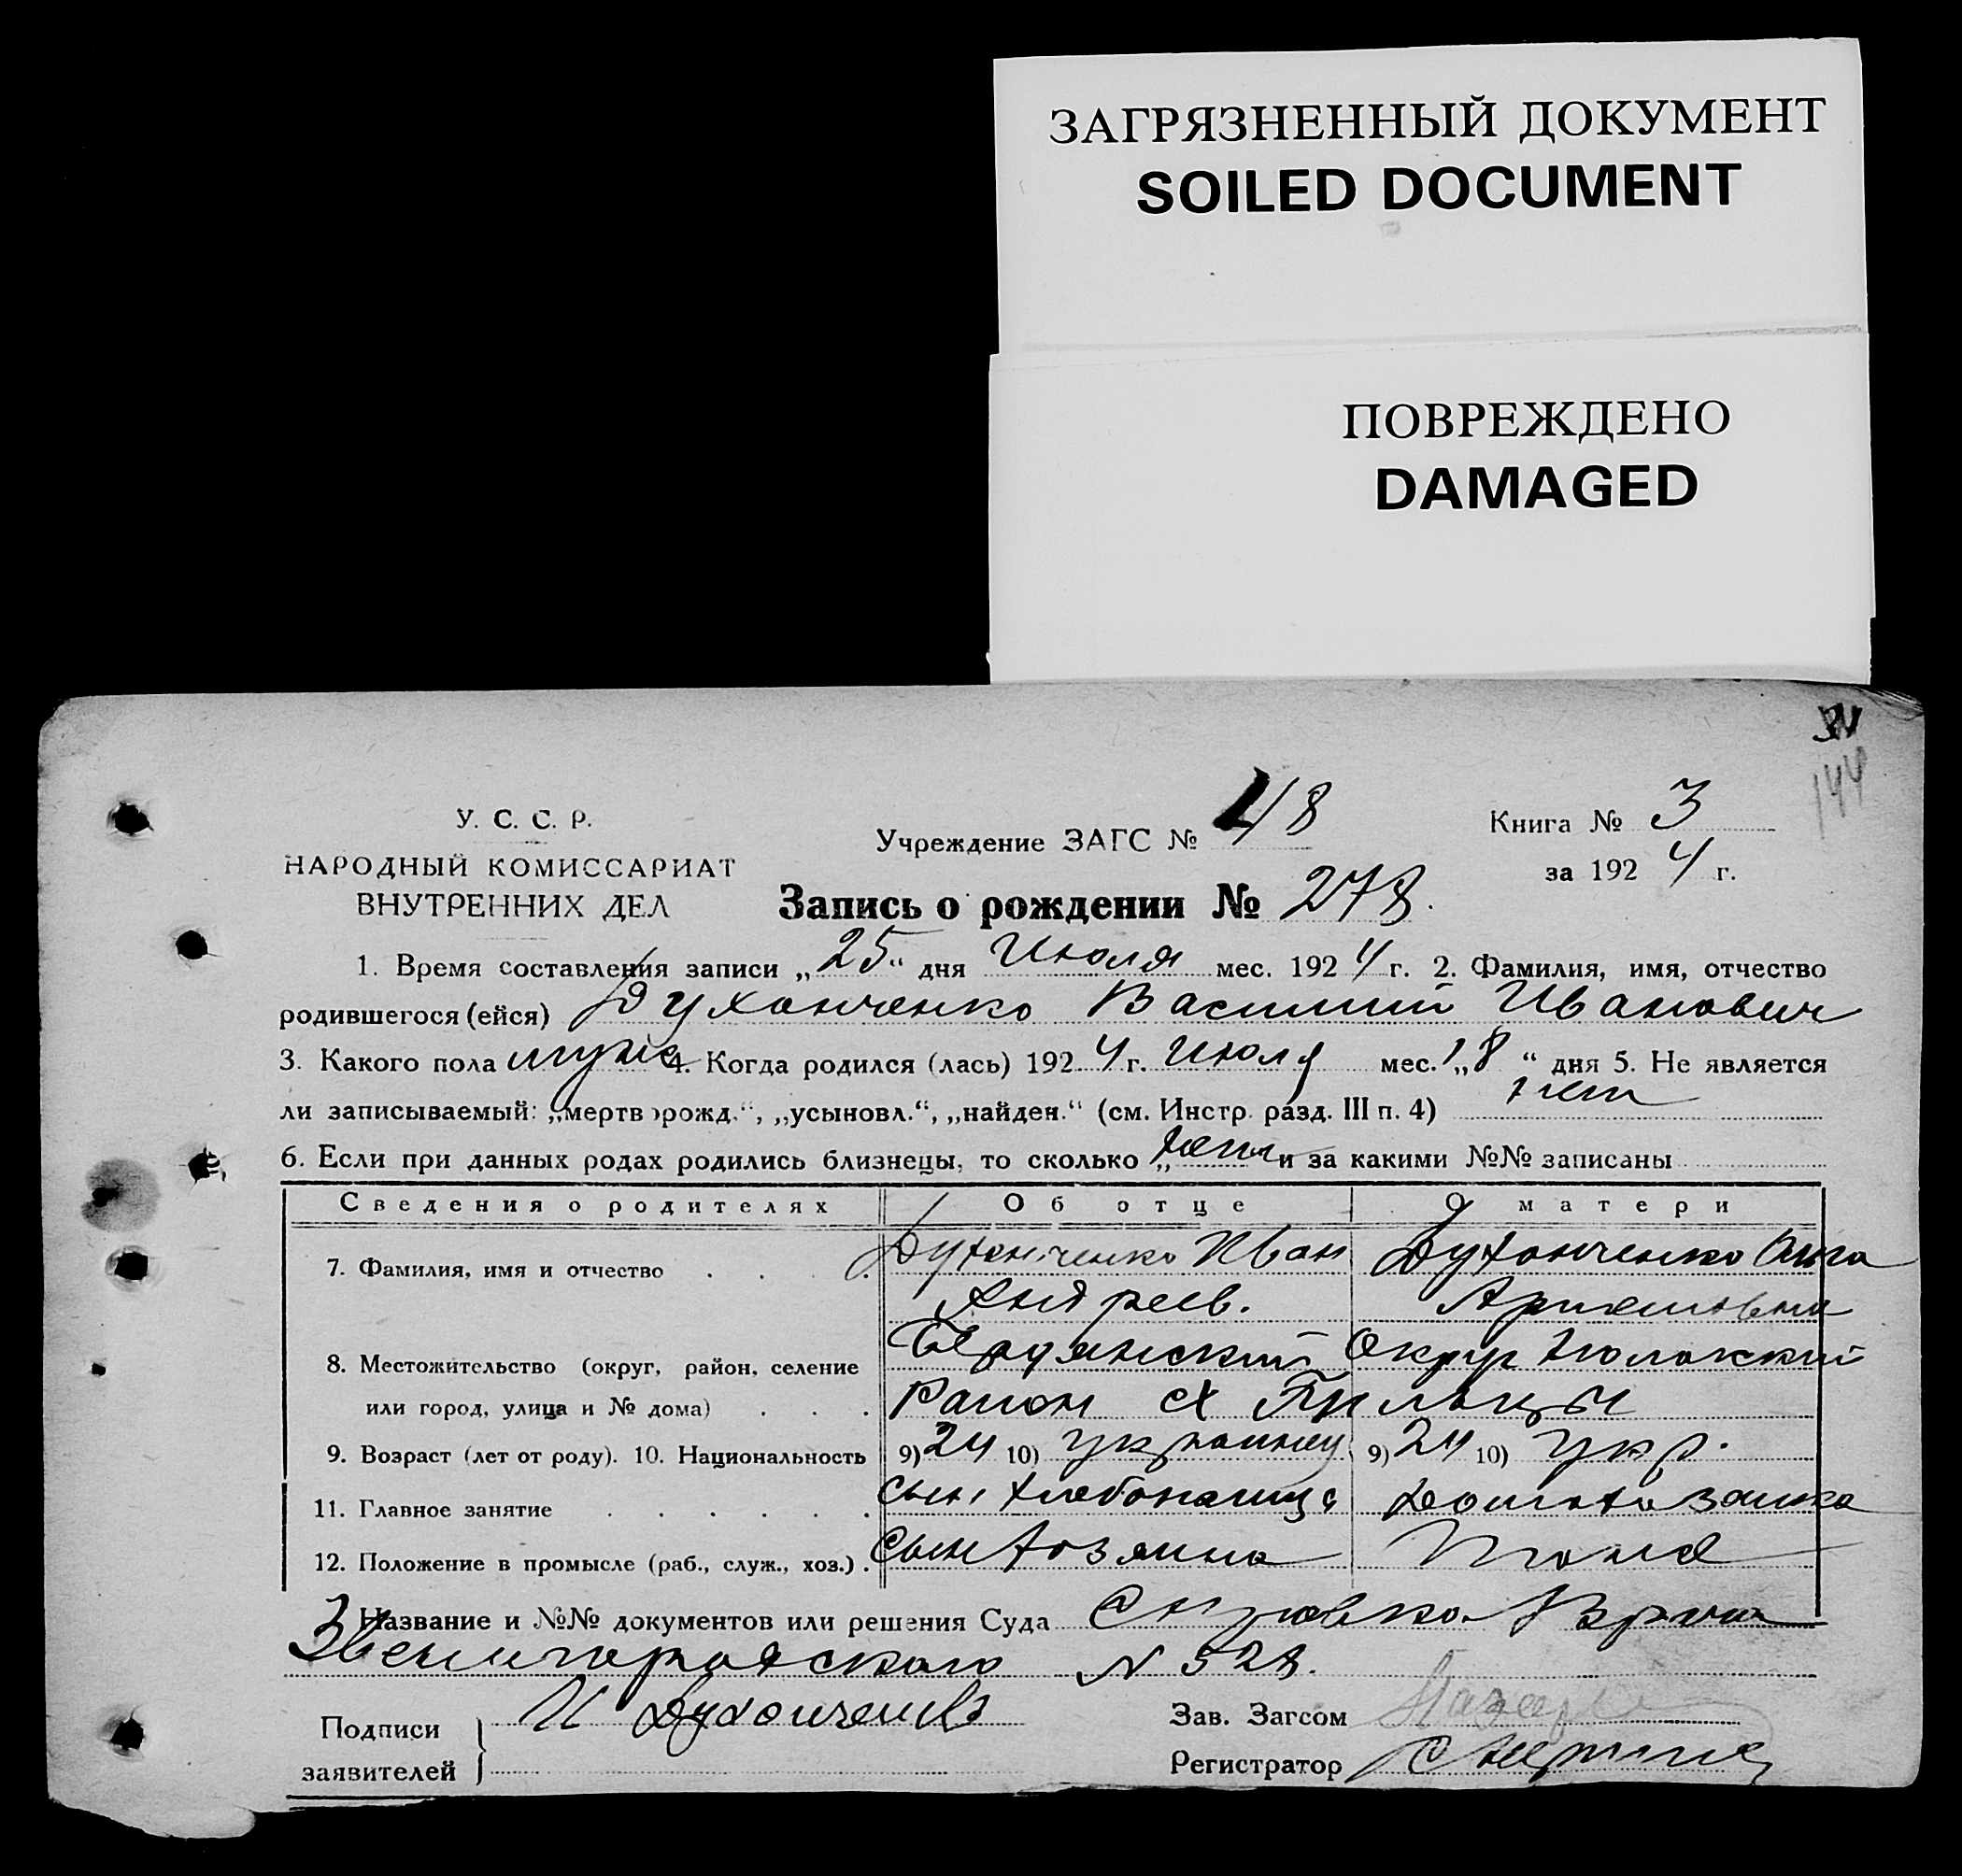 ЗАГРЯЗНЕННЫЙ ДОКУМЕНТ
SOILED DOCUMENT
ПОВРЕЖДЕНО
DAMAGED
144
У. С. С. Р.
НАРОДНЫЙ КОМИССАРИАТ
ВНУТРЕННИХ ДЕЛ
Учреждение ЗАГС № 48
Книга № 3
за 1924 г.
Запись о рождении № 278.
1. Время составления записи „25“ дня Июля мес. 1924 г. 2. Фамилия, имя, отчество
родившегося (ейся) Духонченко Василий Иванович
3. Какого пола муж 4. Когда родился (лась) 1924 г. Июля мес. „18“ дня 5. Не является
ли записываемый: „мертворожд.“, „усыновл.“, „найден.“ (см. Инстр. разд. III п. 4) нет
6. Если при данных родах родились близнецы, то сколько „ и за какими №№ записаны
Сведения о родителях Об отце О матери
7. Фамилия, имя и отчество . . . . Духонченко Иван Духонченко Анна
Андреев. Артемовна
8. Местожительство (округ, район, селение Бердянский Округ
или город, улица и № дома) . . . Район
9. Возраст (лет от роду). 10. Национальность 9) 24 10) украинец 9) 24 10) укр.
11. Главное занятие . . . . . . сын хлебопашца домохозяйка
12. Положение в промысле (раб., служ., хоз.) . сын хозяина
Название и №№ документов или решения Суда Справка Врача
N 528.
Подписи
заявителей
И Духонченко
Зав. Загсом
Регистратор